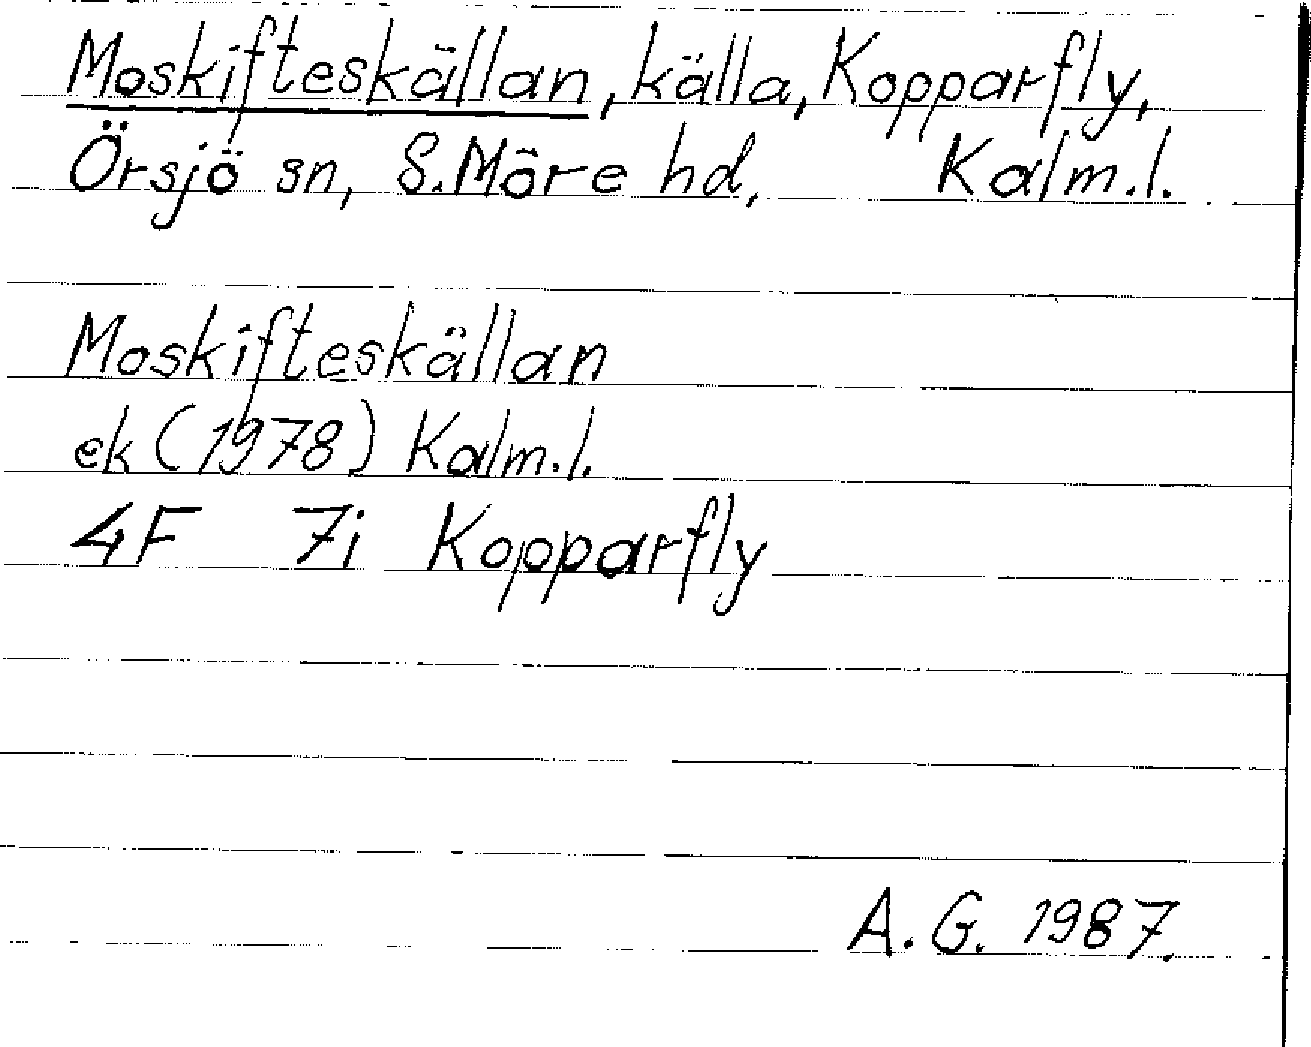 Moskifteskällan, källa, Kopparfly,
Örsjö sn, S. Möre hd, Kalm.l.
Moskifteskällan
ek (1978) Kalm.l.
4F 7i Kopparfly
A.G. 1987.